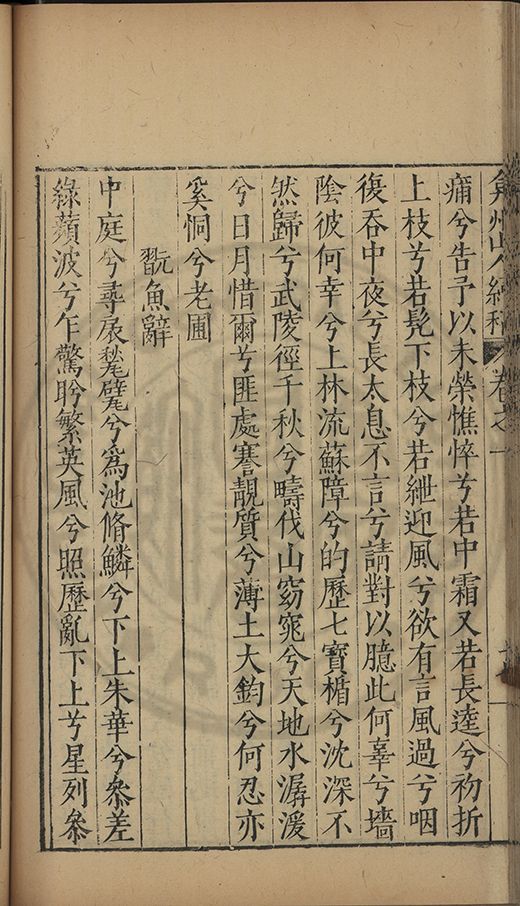 弇州山人續稿 卷之一
痛兮告予以未榮憔悴兮若中霜又若長逵兮初折
上枝兮若髡下枝兮若紲迎風兮欲有言風過兮咽
復吞中夜兮長太息不言兮請對以臆此何辜兮墻
陰彼何幸兮上林流蘇障兮的歷七寶楯兮沈深不
然歸兮武陵徑千秋兮疇伐山窈窕兮天地水潺湲
兮日月惜爾兮匪處謇靚質兮薄土大鈞兮何忍亦
奚恫兮老圃
翫魚辭
中庭兮尋戾甃甓兮爲池脩鱗兮下上朱華兮叅差
綠蘋波兮乍驚盻繁英風兮照歷亂下上兮星列叅